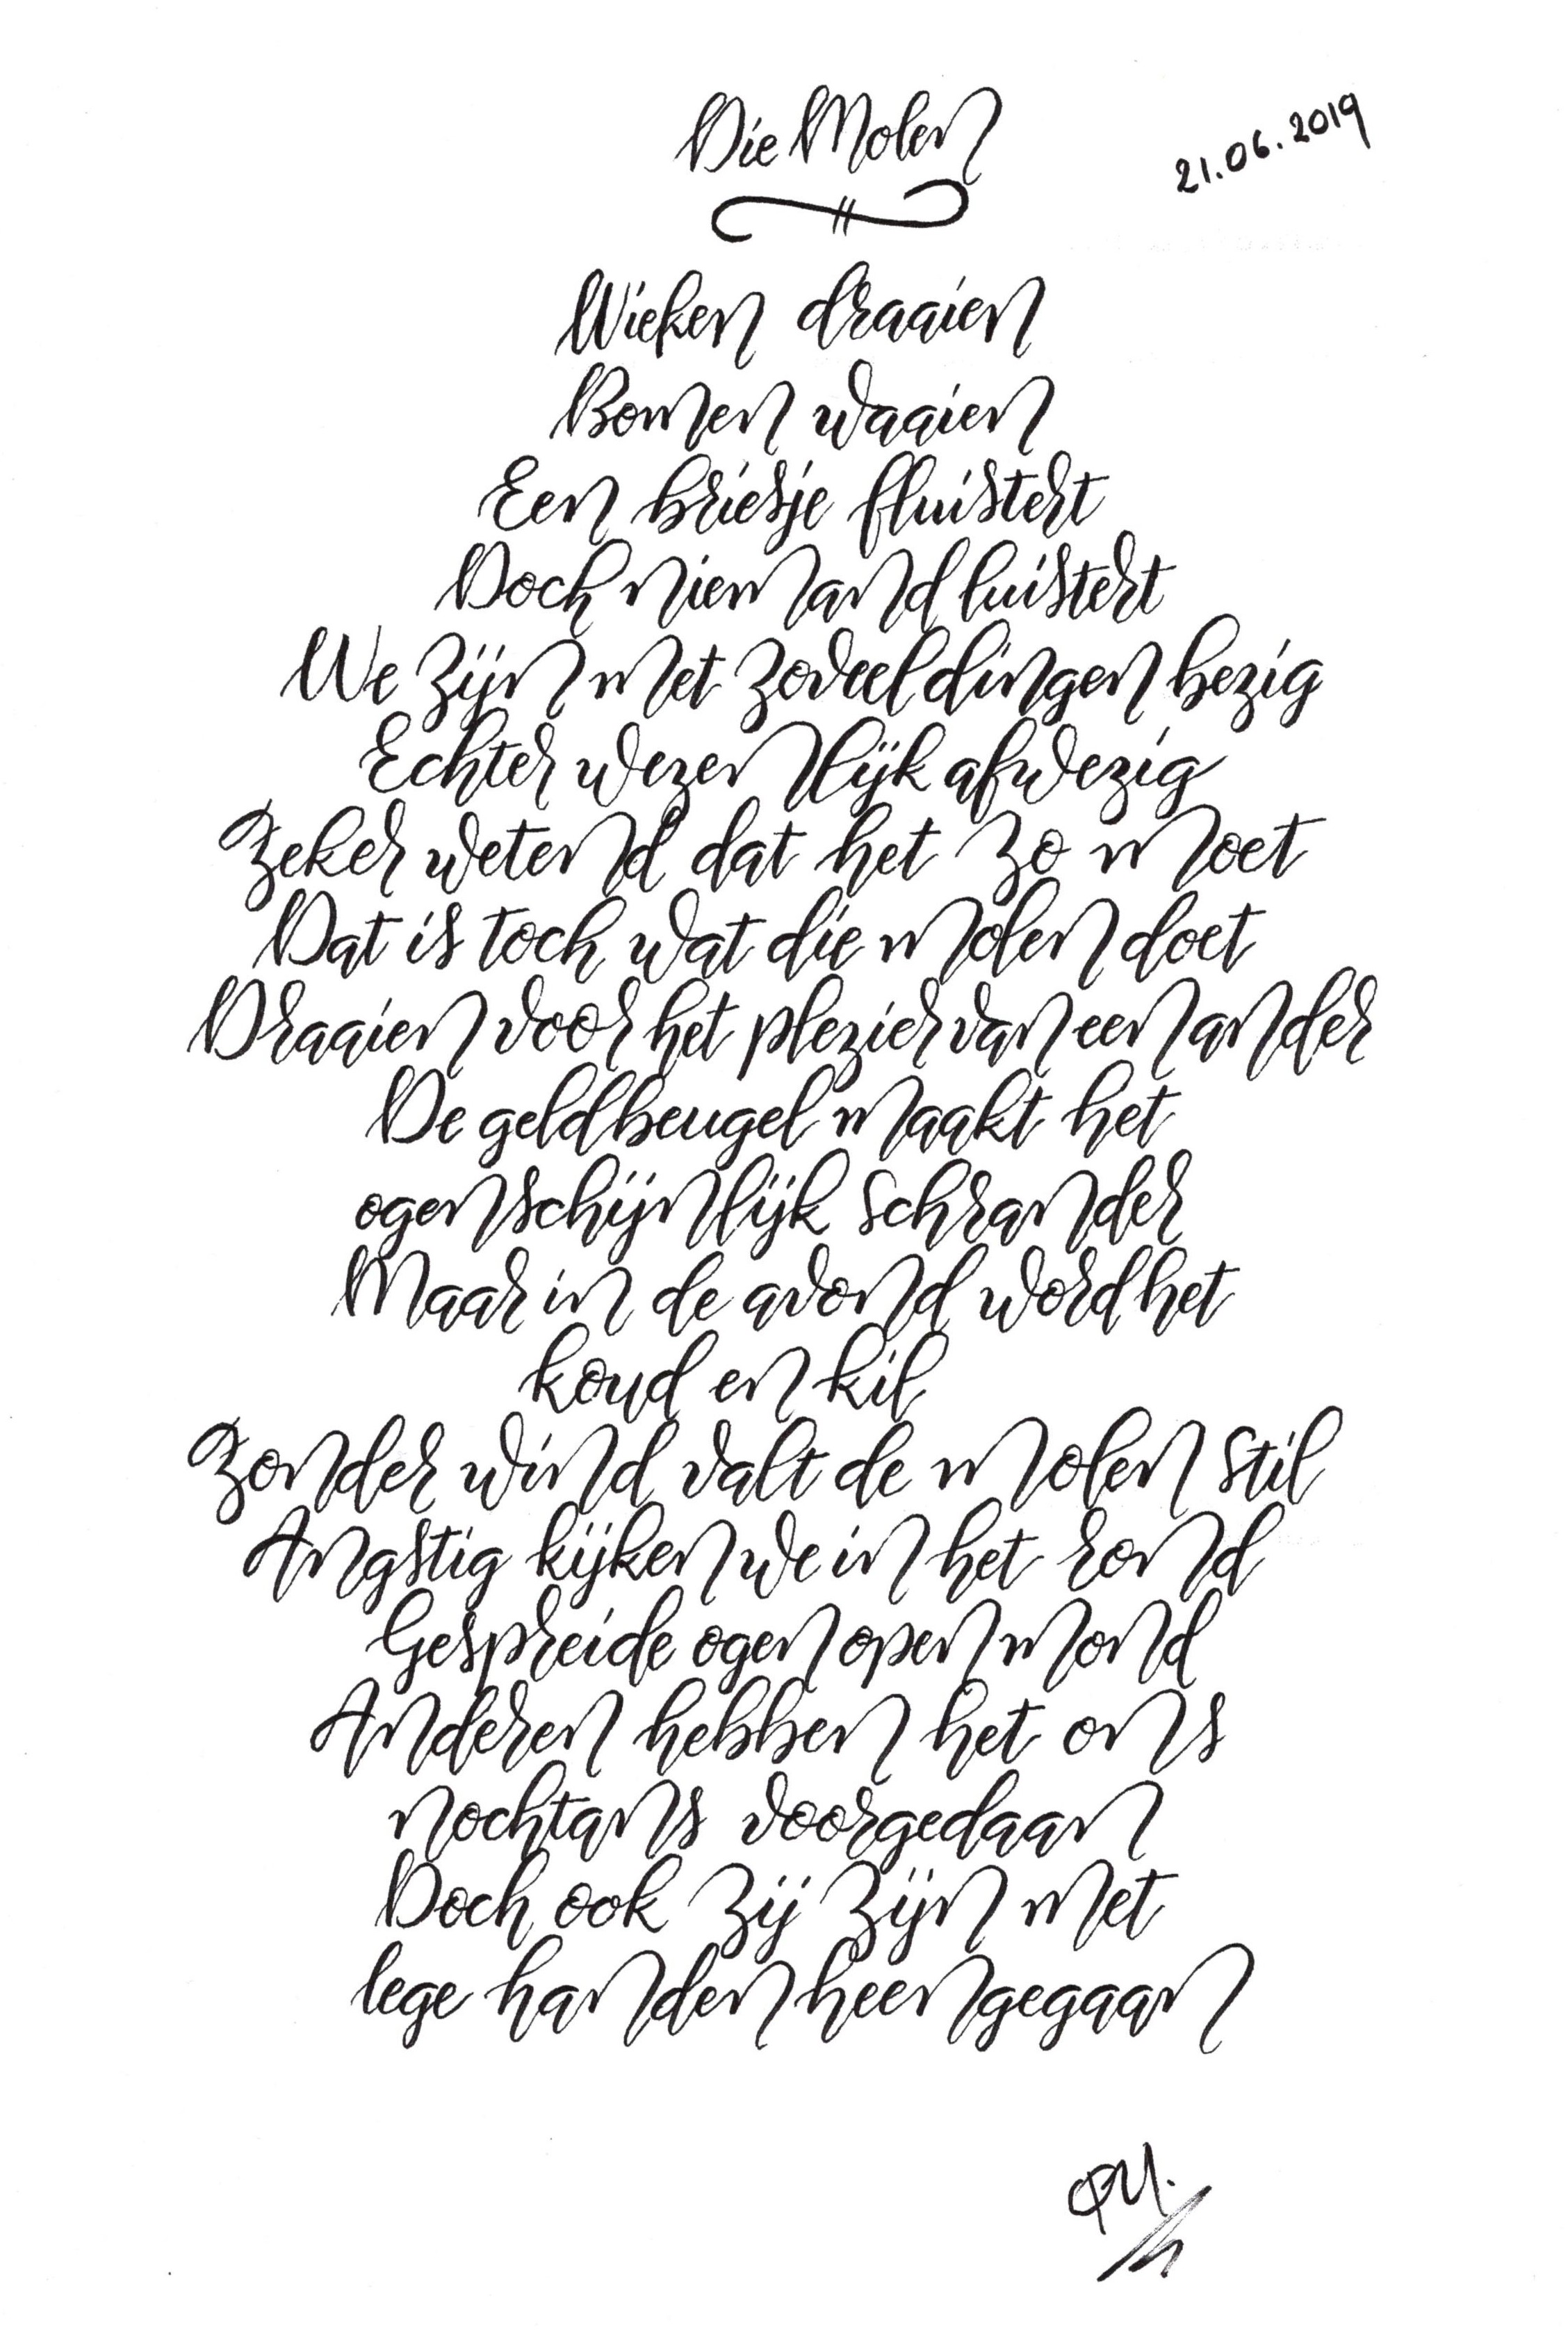 Die Molen
21.06.2019
Wieken draaien
Bomen waaien
Een briesje fluistert
Doch niemand luistert
We zijn met zoveel dingen bezig
Echter wezenlijk afwezig
Zeker wetend dat het zo moet
Dat is toch wat die molen doet
Draaien voor het plezier van een ander
De geldbeugel maakt het
ogenschijnlijk schrander
Maar in de avond word het
koud en kil
Zonder wind valt de molen stil
Angstig kijken we in het rond
Gespreide ogen open mond
Anderen hebben het ons
nochtans voorgedaan
Doch ook zij zijn met
lege handen heengegaan